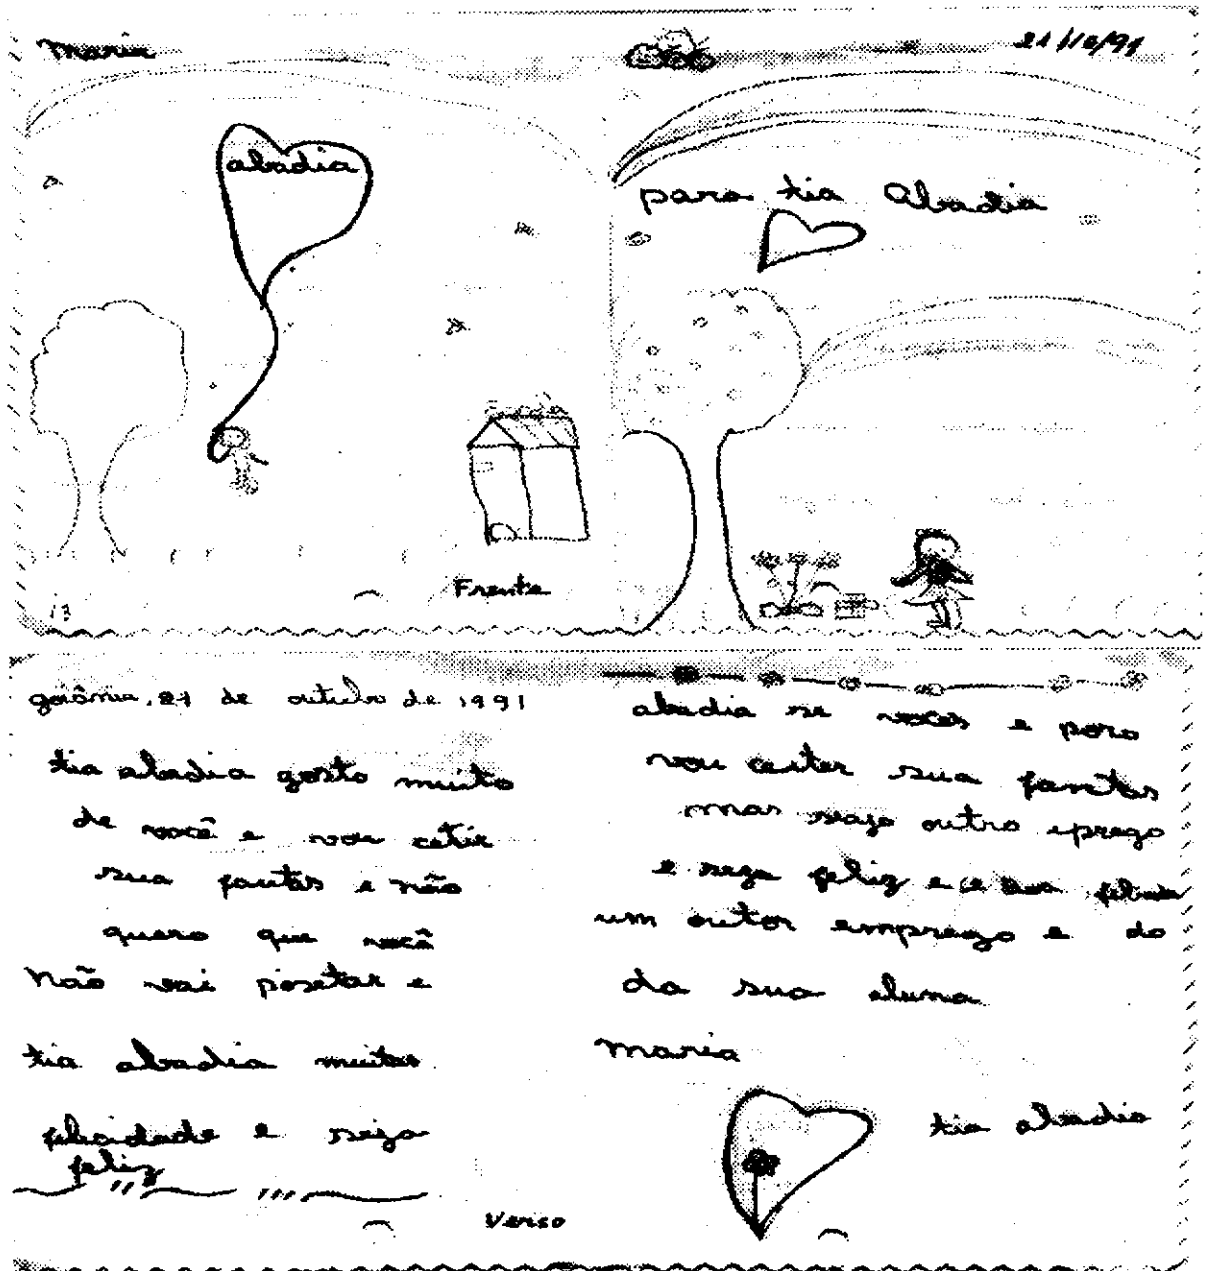 maria
21/10/91
abadia
para tia Abadia
Frente
13
goiânia, 21 de outubro de 1991
tia abadia gosto muito
de você e vou
sua fautas e não
quero que você
Não vai e
tia abadia muitas
felicidade e seja
feliz
Verso
abadia se e para
vou sua
mas seaja outro eprego
e seza feliz e
um outor emprezo e do
da sua aluna
maria
tia abadia